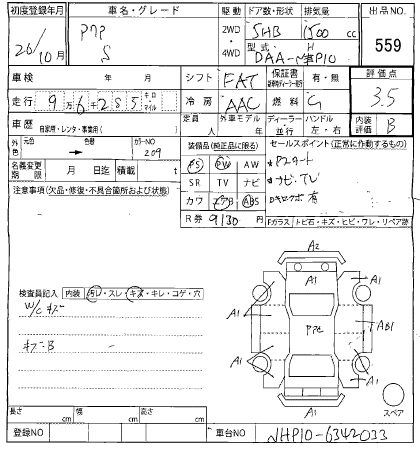 初度登録年月 車名・グレード 駆動 ドア数・形状 排気量 出品NO.
26/10月 アクア S 2WD・4WD 5HB 1500 cc 559
型式 DAA-NHP10
車検 年 月 シフト FAT 保証書 有・無 評価点
走行 9万6千285 キロ・マイル 冷房 AAC 燃料 G 3.5
車歴 自家用・レンタ・事業用( ) 定員 人 外車モデル 年 ディーラー・並行 ハンドル 左・右 内装 B
外色 元色 色替 カラーNO 209
装備品(純正品に限る) セールスポイント(正常に作動するもの)
名義変更期限 月 日迄 積載 t
PS PW AW
SR TV ナビ *ナビ,TV
注意事項(欠品・修復・不具合箇所および状態)
カワ エアB ABS
R券 9130 円
Fガラス トビ石・キズ・ヒビ・ワレ・リペア跡
検査員記入 内装 汚レ・スレ・キズ・キレ・コゲ・穴
W/Cキズ
キズB
A2
A1 A1
A1 アクア AB1
A1 A1
A1
スペア
長さ cm 幅 cm 高さ cm
登録NO 車台NO NHP10-6342033